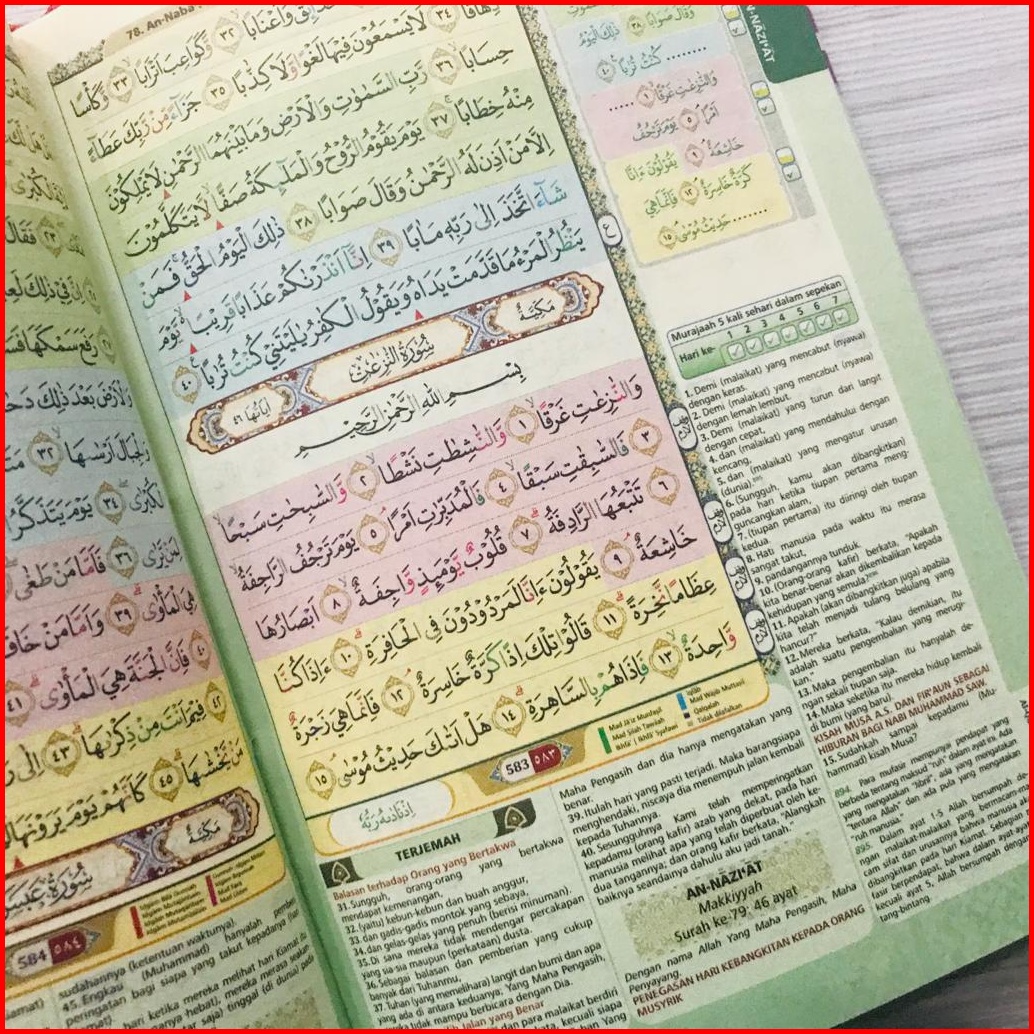 78. An-Naba
حَدَائِقَ وَأَعْنَابًا ٣٢ وَكَوَاعِبَ أَتْرَابًا ٣٣ وَكَأْسًا
دِهَاقًا ٣٤ لَا يَسْمَعُونَ فِيهَا لَغْوًا وَلَا كِذَّابًا ٣٥ جَزَاءً مِنْ رَبِّكَ عَطَاءً
حِسَابًا ٣٦ رَبِّ السَّمٰوٰتِ وَالْأَرْضِ وَمَا بَيْنَهُمَا الرَّحْمٰنِ لَا يَمْلِكُونَ
مِنْهُ خِطَابًا ٣٧ يَوْمَ يَقُومُ الرُّوحُ وَالْمَلٰٓئِكَةُ صَفًّا لَا يَتَكَلَّمُونَ
إِلَّا مَنْ أَذِنَ لَهُ الرَّحْمٰنُ وَقَالَ صَوَابًا ٣٨ ذٰلِكَ الْيَوْمُ الْحَقُّ فَمَنْ
شَاءَ اتَّخَذَ إِلٰى رَبِّهِ مَاٰبًا ٣٩ إِنَّا أَنْذَرْنٰكُمْ عَذَابًا قَرِيبًا يَوْمَ
يَنْظُرُ الْمَرْءُ مَا قَدَّمَتْ يَدَاهُ وَيَقُولُ الْكٰفِرُ يٰلَيْتَنِي كُنْتُ تُرٰبًا ٤٠
مَكِّيَّةٌ
سُورَةُ النّٰزِعٰتِ
اٰيَاتُهَا ٤٦
بِسْمِ اللهِ الرَّحْمٰنِ الرَّحِيْمِ
وَالنّٰزِعٰتِ غَرْقًا ١ وَالنّٰشِطٰتِ نَشْطًا ٢ وَالسّٰبِحٰتِ سَبْحًا
٣ فَالسّٰبِقٰتِ سَبْقًا ٤ فَالْمُدَبِّرٰتِ أَمْرًا ٥ يَوْمَ تَرْجُفُ الرَّاجِفَةُ
٦ تَتْبَعُهَا الرَّادِفَةُ ٧ قُلُوبٌ يَوْمَئِذٍ وَاجِفَةٌ ٨ أَبْصَارُهَا
خَاشِعَةٌ ٩ يَقُولُونَ ءَاِنَّا لَمَرْدُودُونَ فِي الْحَافِرَةِ ١٠ ءَاِذَا كُنَّا
عِظَامًا نَخِرَةً ١١ قَالُوا تِلْكَ إِذًا كَرَّةٌ خَاسِرَةٌ ١٢ فَإِنَّمَا هِيَ زَجْرَةٌ
وَاحِدَةٌ ١٣ فَإِذَا هُمْ بِالسَّاهِرَةِ ١٤ هَلْ أَتٰىكَ حَدِيثُ مُوسٰى ١٥
583 ٥٨٣
اِذْ نَادٰىهُ رَبُّهُ
Mad Ja'iz Munfaşil
Mad Şilah Ţawilah
Iqlab
Mad Wajib Muttaşil
Qalqalah
Tidak dilafalkan
AN-NĀZI'ĀT
وَقَالَ صَوَابًا ٣٨ ذٰلِكَ الْيَوْمُ
........ كُنْتُ تُرٰبًا ٤٠
وَالنّٰزِعٰتِ غَرْقًا ١ .....
أَمْرًا ٥ يَوْمَ تَرْجُفُ
خَاشِعَةٌ ٩ يَقُولُونَ ءَاِنَّا
كَرَّةٌ خَاسِرَةٌ ١٢ فَإِنَّمَا هِيَ
........ حَدِيثُ مُوسٰى ١٥
Murajaah 5 kali sehari dalam sepekan
Hari ke- 1 2 3 4 5 6 7
TERJEMAH
Balasan terhadap Orang yang Bertakwa
31. Sungguh, orang-orang yang bertakwa
mendapat kemenangan,
32. (yaitu) kebun-kebun dan buah anggur,
33. dan gadis-gadis montok yang sebaya,
34. dan gelas-gelas yang penuh (berisi minuman).
35. Di sana mereka tidak mendengar percakapan
yang sia-sia maupun (perkataan) dusta.
36. Sebagai balasan dan pemberian yang cukup
banyak dari Tuhanmu,
37. Tuhan (yang memelihara) langit dan bumi dan apa
yang ada di antara keduanya; Yang Maha Pengasih,
mereka tidak mampu berbicara dengan Dia.
Jalan yang Benar
dan para malaikat berdiri
kecuali siapa
Maha Pengasih dan dia hanya mengatakan yang
benar.
39. Itulah hari yang pasti terjadi. Maka barangsiapa
menghendaki, niscaya dia menempuh jalan kembali
kepada Tuhannya.
40. Sesungguhnya Kami telah memperingatkan
kepadamu (orang kafir) azab yang dekat, pada hari
manusia melihat apa yang telah diperbuat oleh ke-
dua tangannya; dan orang kafir berkata, "Alangkah
baiknya seandainya dahulu aku jadi tanah."
AN-NĀZI'ĀT
Makkiyyah
Surah ke-79: 46 ayat
Dengan nama Allah Yang Maha Pengasih, Maha
Penyayang.
PENEGASAN HARI KEBANGKITAN KEPADA ORANG
MUSYRIK
1. Demi (malaikat) yang mencabut (nyawa)
dengan keras.
2. Demi (malaikat) yang mencabut (nyawa)
dengan lemah lembut.
3. Demi (malaikat) yang turun dari langit
dengan cepat,
4. dan (malaikat) yang mendahului dengan
kencang,
5. dan (malaikat) yang mengatur urusan
(dunia).
6. (Sungguh, kamu akan dibangkitkan)
pada hari ketika tiupan pertama meng-
guncangkan alam,
7. (tiupan pertama) itu diiringi oleh tiupan
kedua.
8. Hati manusia pada waktu itu merasa
sangat takut,
9. pandangannya tunduk.
10. (Orang-orang kafir) berkata, "Apakah
kita benar-benar akan dikembalikan kepada
kehidupan yang semula?
11. Apakah (akan dibangkitkan juga) apabila
kita telah menjadi tulang belulang yang
hancur?"
12. Mereka berkata, "Kalau demikian, itu
adalah suatu pengembalian yang merugi-
kan."
13. Maka pengembalian itu hanyalah de-
ngan sekali tiupan saja.
14. Maka seketika itu mereka hidup kembali
di bumi (yang baru).
KISAH MUSA A.S. DAN FIR'AUN SEBAGAI
HIBURAN BAGI NABI MUHAMMAD SAW.
15. Sudahkah sampai kepadamu (Mu-
hammad) kisah Musa?
894. Para mufasir mempunyai pendapat yang
berbeda tentang maksud "ruh" dalam ayat ini. Ada
yang mengatakan "Jibril", ada yang mengatakan
"tentara Allah" dan ada pula yang mengatakan
"ruh manusia."
895. Dalam ayat 1-5 Allah bersumpah de-
ngan malaikat-malaikat yang bermacam-ma-
cam sifat dan urusannya bahwa manusia akan
dibangkitkan pada hari Kiamat. Sebagian
tafsir berpendapat, bahwa dalam ayat-ayat
kecuali ayat 5, Allah bersumpah dengan
tang-bintang.
584 ٥٨٤
سُورَةُ عَبَسَ
مَكِّيَّةٌ
sudahannya (ketentuan waktunya).
45. Engkau (Muhammad) hanyalah pemberi
peringatan bagi siapa yang takut kepadanya (hari
hari ketika mereka melihat hari Kiamat itu
mereka merasa seakan-
saja) tinggal (di dunia) pada